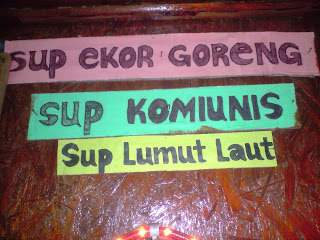 sup EKOR GORENG
sup KOMIUNIS
Sup Lumut Laut